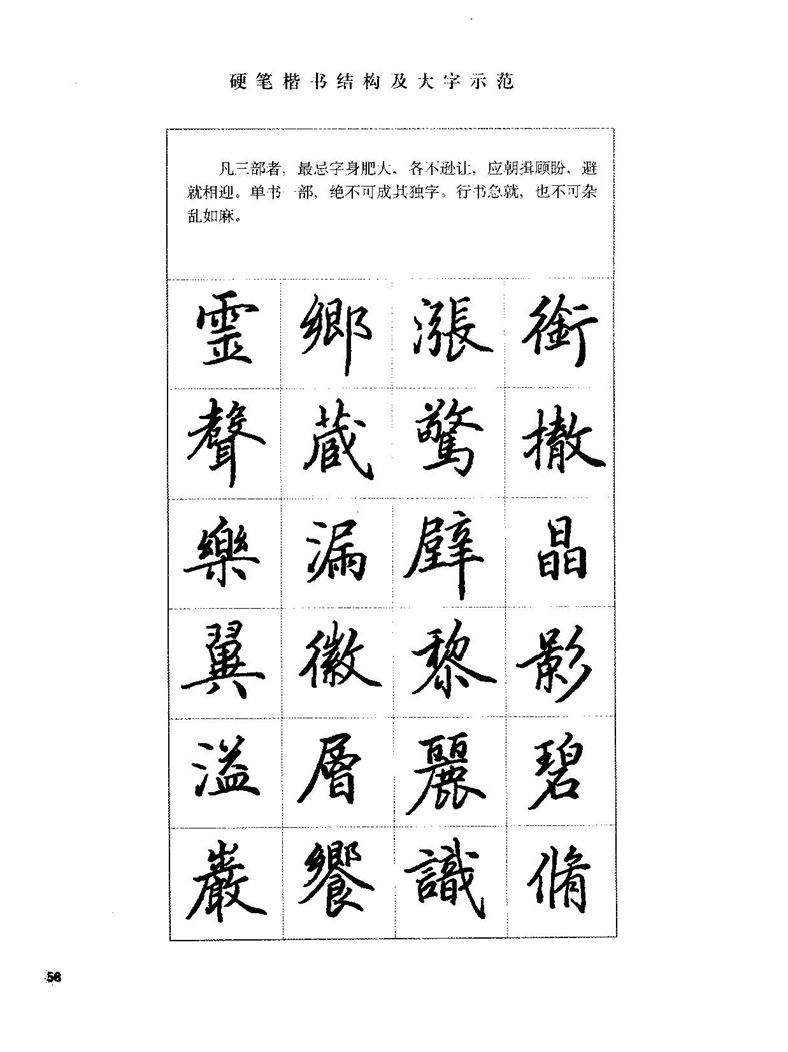 硬笔楷书结构及大字示范
凡三部者，最忌字身肥大、各不逊让，应朝揖顾盼、避
就相迎。单书一部，绝不可成其独字。行书急就，也不可杂
乱如麻。
靈 鄉 漲 銜
聲 蔵 驚 撤
樂 漏 壁 晶
翼 徽 黎 影
溢 層 麗 碧
巖 饗 識 脩
56